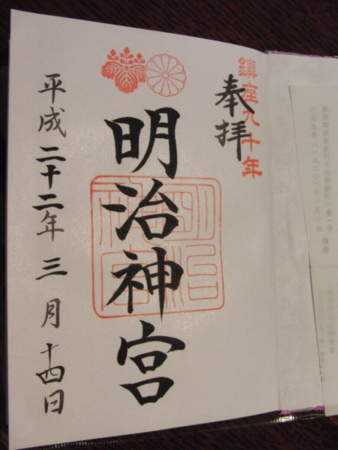 鎮座九十年
奉拝
明治神宮
平成二十二年三月十四日